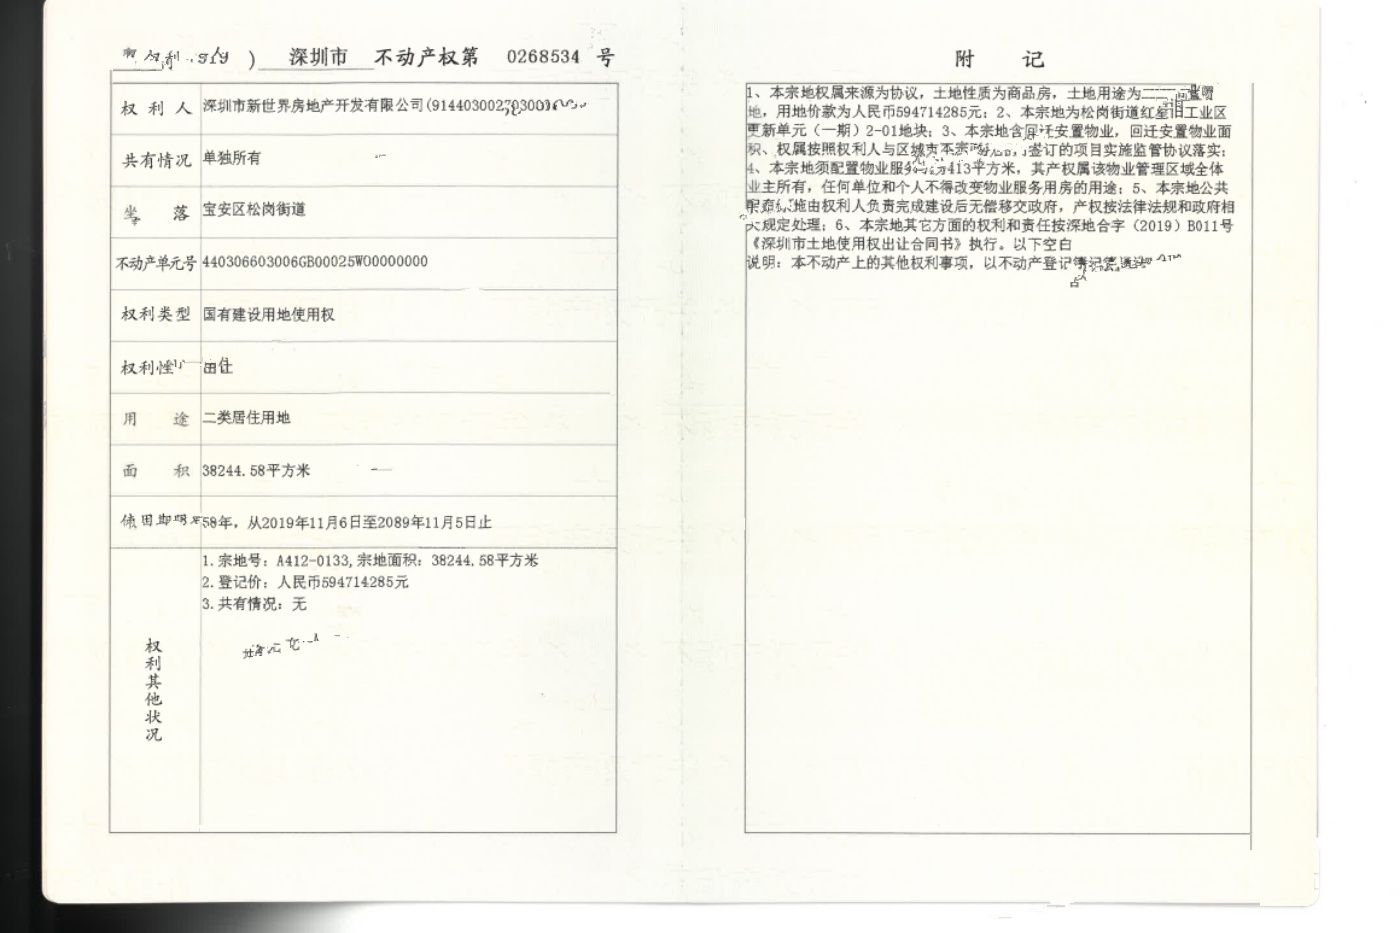 ) 深圳市 不动产权第 0268534 号
权利人 深圳市新世界房地产开发有限公司(914403002
共有情况 单独所有
坐落 宝安区松岗街道
不动产单元号 440306603006GB00025W00000000
权利类型 国有建设用地使用权
权利性
用途 二类居住用地
面积 38244.58平方米
年，从2019年11月6日至2089年11月5日止
1.宗地号：A412-0133,宗地面积：38244.58平方米
2.登记价：人民币594714285元
3.共有情况：无
权利其他状况
附记
1、本宗地权属来源为协议，土地性质为商品房，土地用途为
地，用地价款为人民币594714285元；2、本宗地为松岗街道红星 工业区
更新单元（一期）2-01地块；3、本宗地含回迁安置物业，回迁安置物业面
积、权属按照权利人与区城市 签订的项目实施监管协议落实；
4、本宗地须配置物业服 413平方米，其产权属该物业管理区域全体
业主所有，任何单位和个人不得改变物业服务用房的用途；5、本宗地公共
施由权利人负责完成建设后无偿移交政府，产权按法律法规和政府相
规定处理；6、本宗地其它方面的权利和责任按深地合字（2019）B011号
《深圳市土地使用权出让合同书》执行。以下空白
说明：本不动产上的其他权利事项，以不动产登记